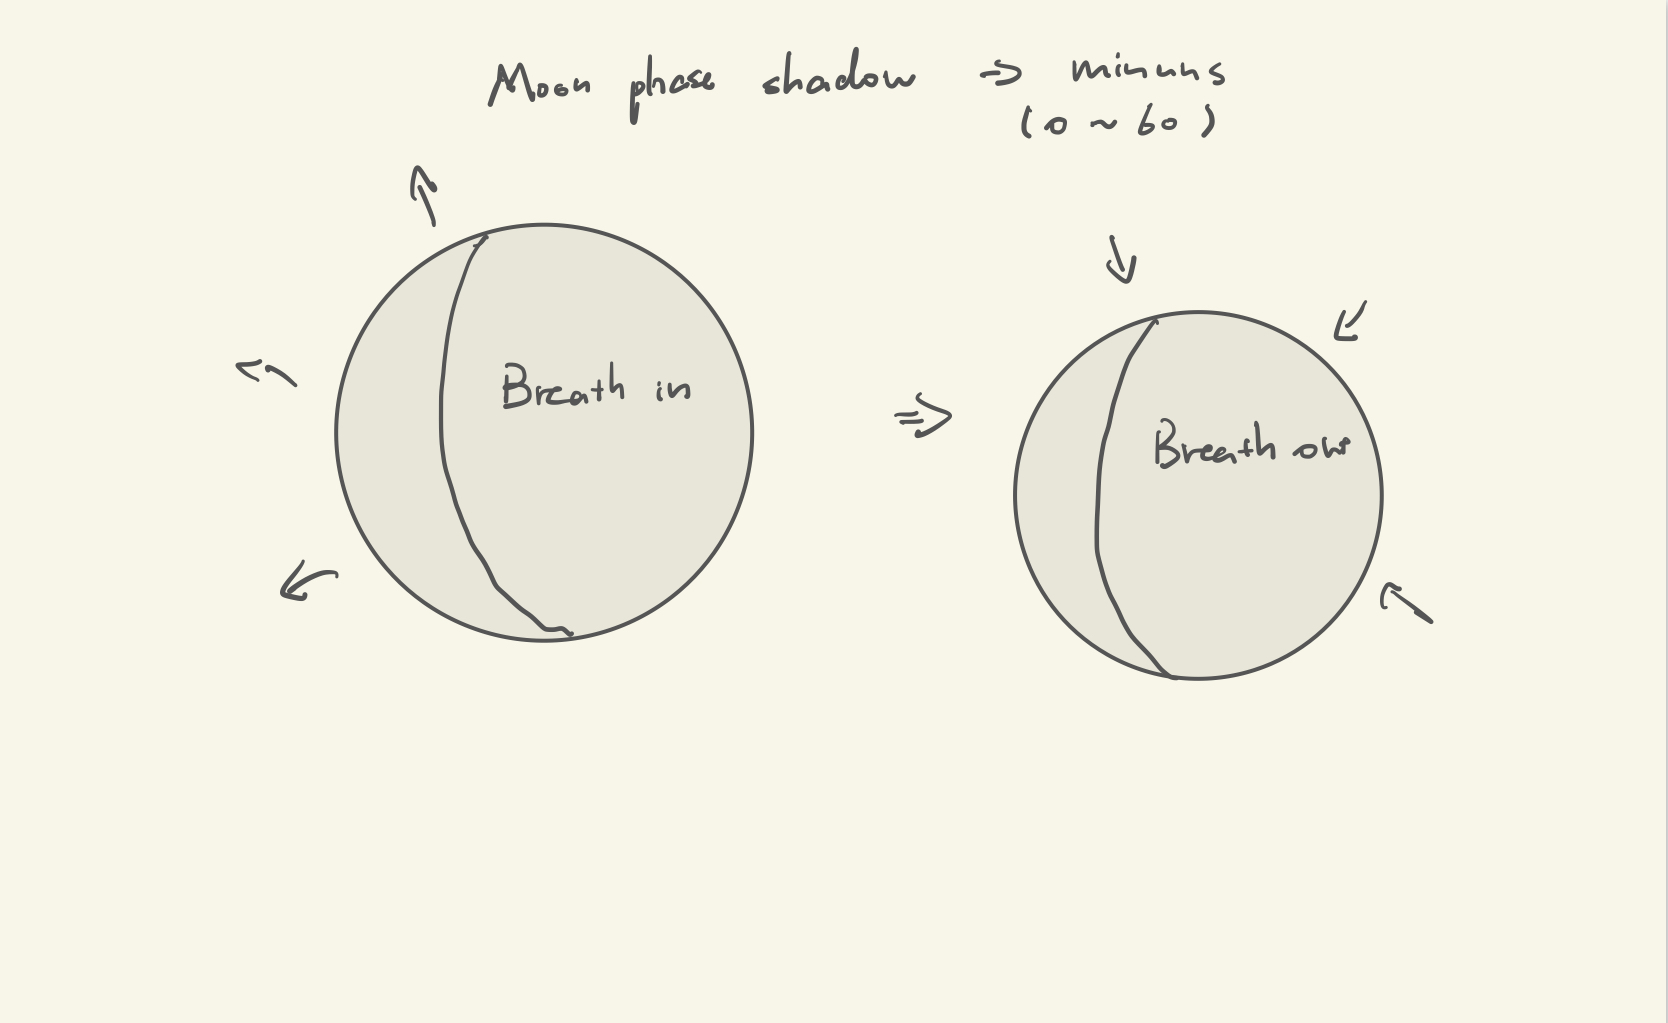 Moon phase shadow → minuns
(0 ~ 60)
Breath in
⇒
Breath out